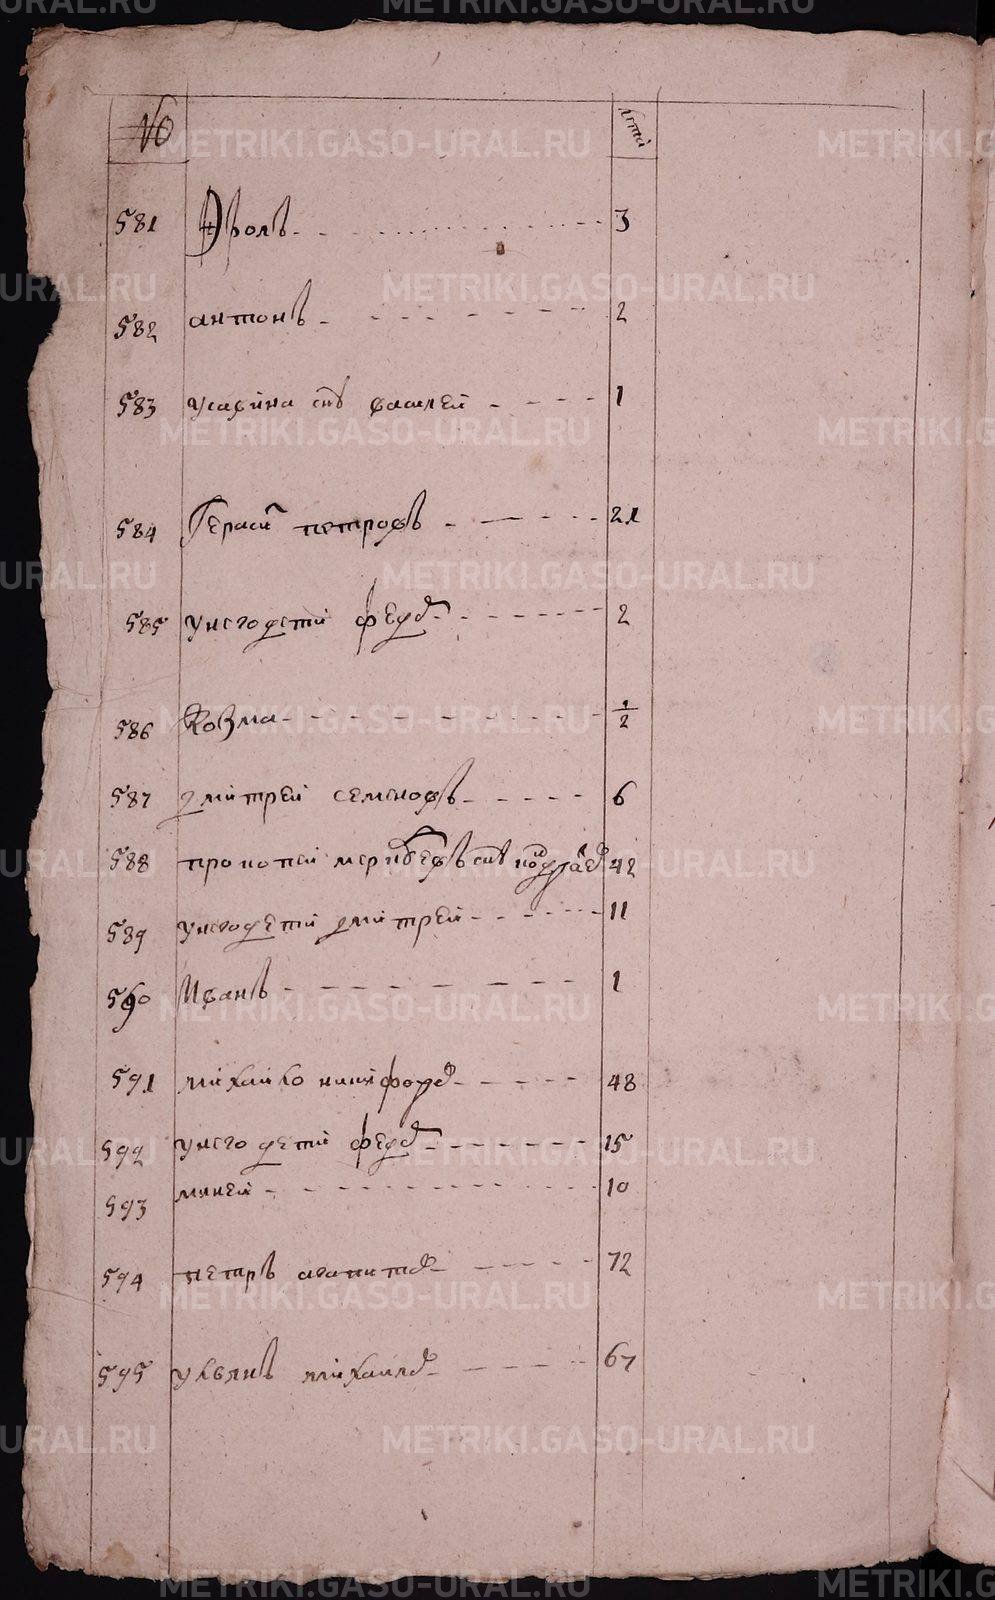 № Лѣта
581 Фролъ 3
582 антонъ 2
583 усавина снъ василей 1
584 Герасимъ петровъ 21
585 унего дети федоръ 2
586 Козма 1/2
587 дмитрей семеновъ 6
588 прокопей снъ 42
589 унего дети дмитрей 11
590 Иванъ 1
591 михайло никифоровъ 48
592 унего дети федоръ 15
593 миней 10
594 петръ агапитовъ 72
595 ульянъ михайловъ 67
METRIKI.GASO-URAL.RU